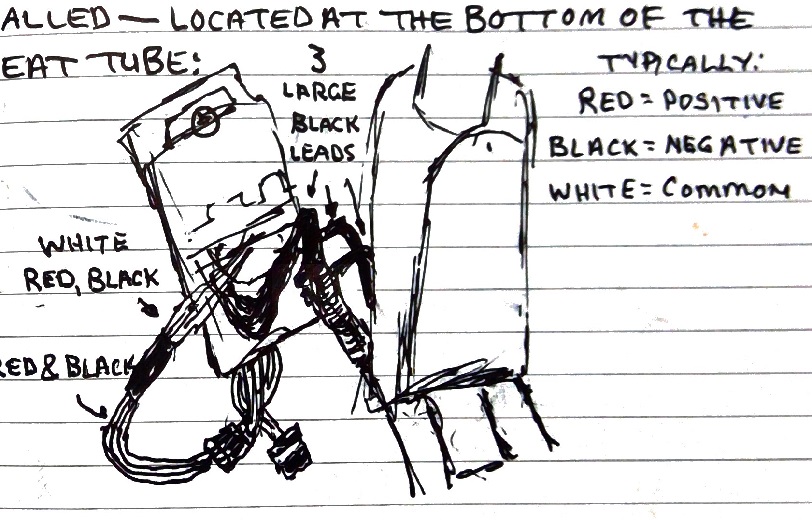 ALLED — LOCATED AT THE BOTTOM OF THE
EAT TUBE:
3
LARGE
BLACK
LEADS
TYPICALLY:
RED = POSITIVE
BLACK = NEGATIVE
WHITE = COMMON
WHITE
RED, BLACK
RED & BLACK